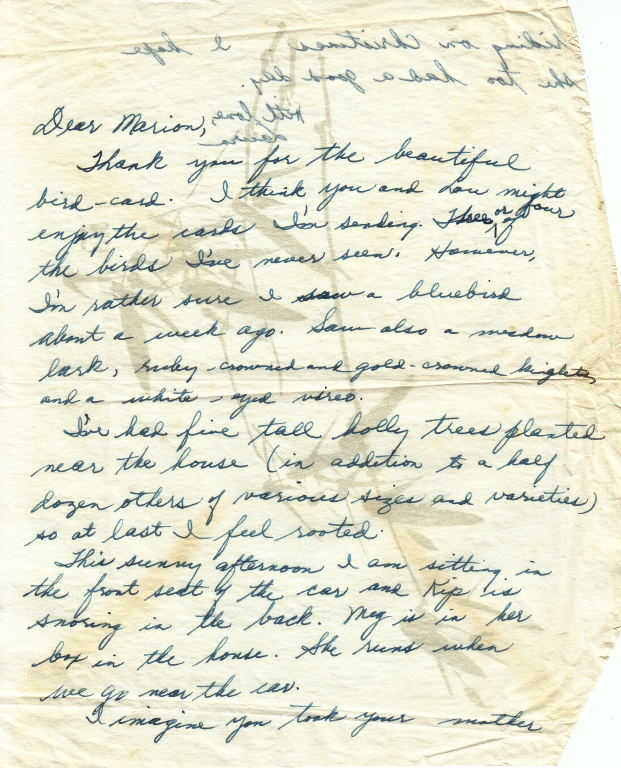 Dear Marion,
Thank you for the beautiful
bird-card. I think you and Lou might
enjoy the cards I'm sending. Three or four of
the birds I've never seen. However,
I'm rather sure I saw a bluebird
about a week ago. Saw also a meadow
lark, ruby-crowned and gold-crowned kinglets,
and a white-eyed vireo.
I've had five tall holly trees planted
near the house (in addition to a half
dozen others of various sizes and varieties)
so at last I feel rooted.
This sunny afternoon I am sitting in
the front seat of the car and Kip is
snoring in the back. Meg is in her
box in the house. She runs when
we go near the car.
I imagine you took your mother
riding on Christmas. I hope
she too had a good day.
With love,
Laura